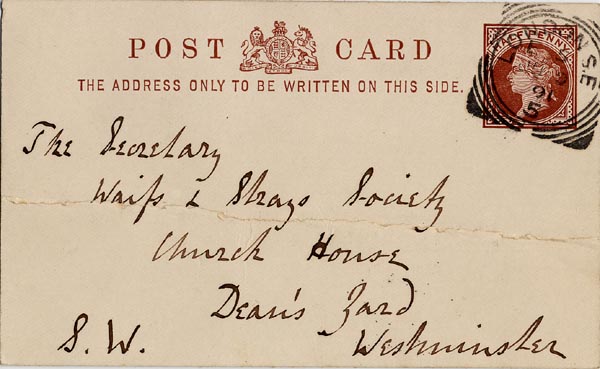 POST CARD
THE ADDRESS ONLY TO BE WRITTEN ON THIS SIDE.
HALFPENNY
LONDON SE
5
The Secretary
Waifs & Strays Society
Church House
Dean's Yard
S. W. Westminster